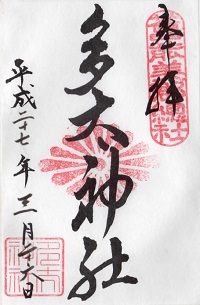 奉拝
多太神社
平成二十七年三月二十六日